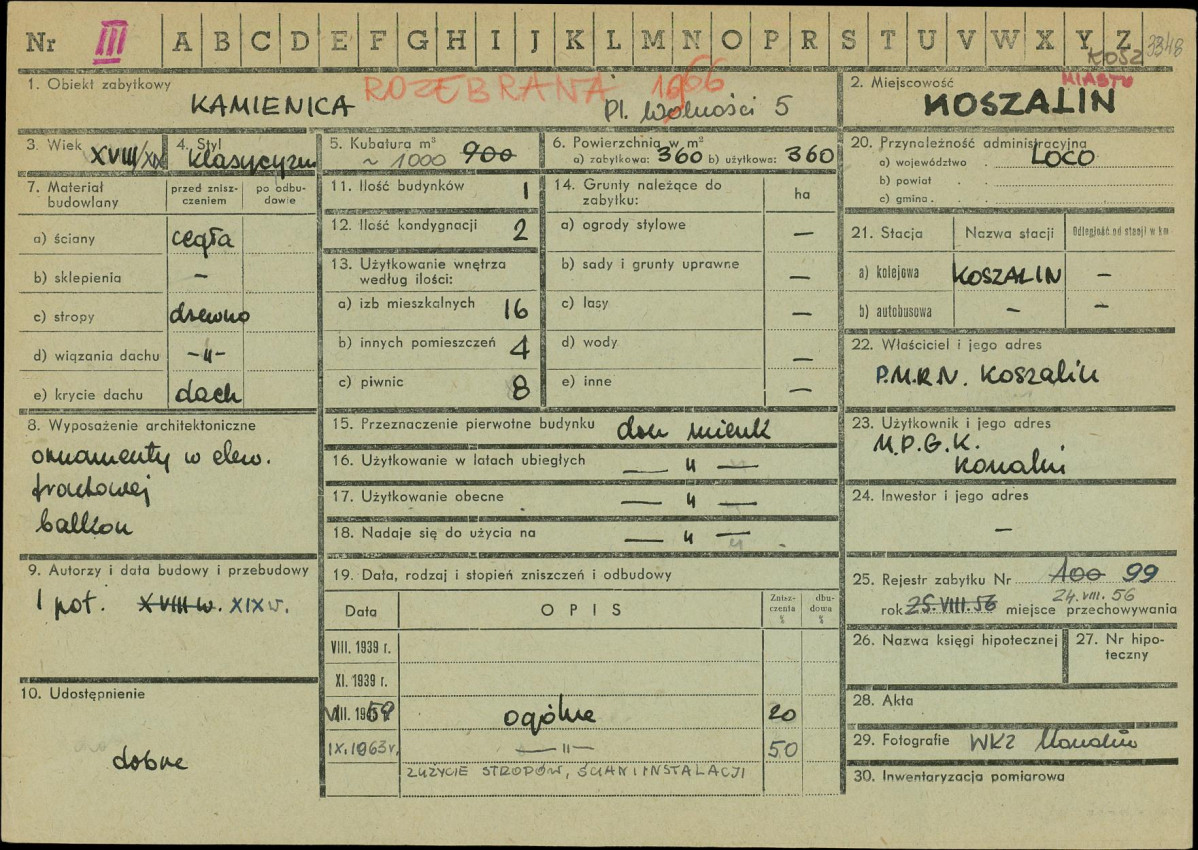 Nr III A B C D E F G H I J K L M N O P R S T U V W X Y Z 3348
KOSZ
MIASTO
1. Obiekt zabytkowy
ROZEBRANA 1966
KAMIENICA Pl. Wolności 5
2. Miejscowość
KOSZALIN
3. Wiek XVIII/XIX
4. Styl klasycyzm
5. Kubatura m³
~ 1000 900
6. Powierzchnia w m²
a) zabytkowa: 360 b) użytkowa: 360
20. Przynależność administracyjna
a) województwo . LOCO
b) powiat . .
c) gmina . . .
7. Materiał budowlany
przed znisz-
czeniem
po odbu-
dowie
a) ściany cegła
b) sklepienia –
c) stropy drewno
d) wiązania dachu –„–
e) krycie dachu dach
11. Ilość budynków 1
12. Ilość kondygnacji 2
13. Użytkowanie wnętrza
według ilości:
a) izb mieszkalnych 16
b) innych pomieszczeń 4
c) piwnic 8
14. Grunty należące do
zabytku:
ha
a) ogrody stylowe –
b) sady i grunty uprawne –
c) lasy –
d) wody –
e) inne –
21. Stacja Nazwa stacji Odległość od stacji w km
a) kolejowa KOSZALIN –
b) autobusowa – –
22. Właściciel i jego adres
P.M.R.N. Koszalin
8. Wyposażenie architektoniczne
ornamenty w elew.
frontowej
balkon
15. Przeznaczenie pierwotne budynku dom mieszk
16. Użytkowanie w latach ubiegłych — „ —
17. Użytkowanie obecne — „ —
18. Nadaje się do użycia na — „ —
23. Użytkownik i jego adres
M.P.G.K.
Koszalin
24. Inwestor i jego adres
–
9. Autorzy i data budowy i przebudowy
1 poł. XVIII w. XIX w.
19. Data, rodzaj i stopień zniszczeń i odbudowy
Data OPIS
Znisz-
czenia
%
dbu-
dowa
%
VIII. 1939 r.
XI. 1939 r.
VIII. 1959 ogólne 20
IX. 1963 r. — „ — 50
ZUŻYCIE STROPÓW, ŚCIAN I INSTALACJI
10. Udostępnienie
dobre
25. Rejestr zabytku Nr 100 99
24. VIII. 56
rok 25. VIII. 56 miejsce przechowywania
26. Nazwa księgi hipotecznej
27. Nr hipo-
teczny
28. Akta
29. Fotografie WKZ Koszalin
30. Inwentaryzacja pomiarowa